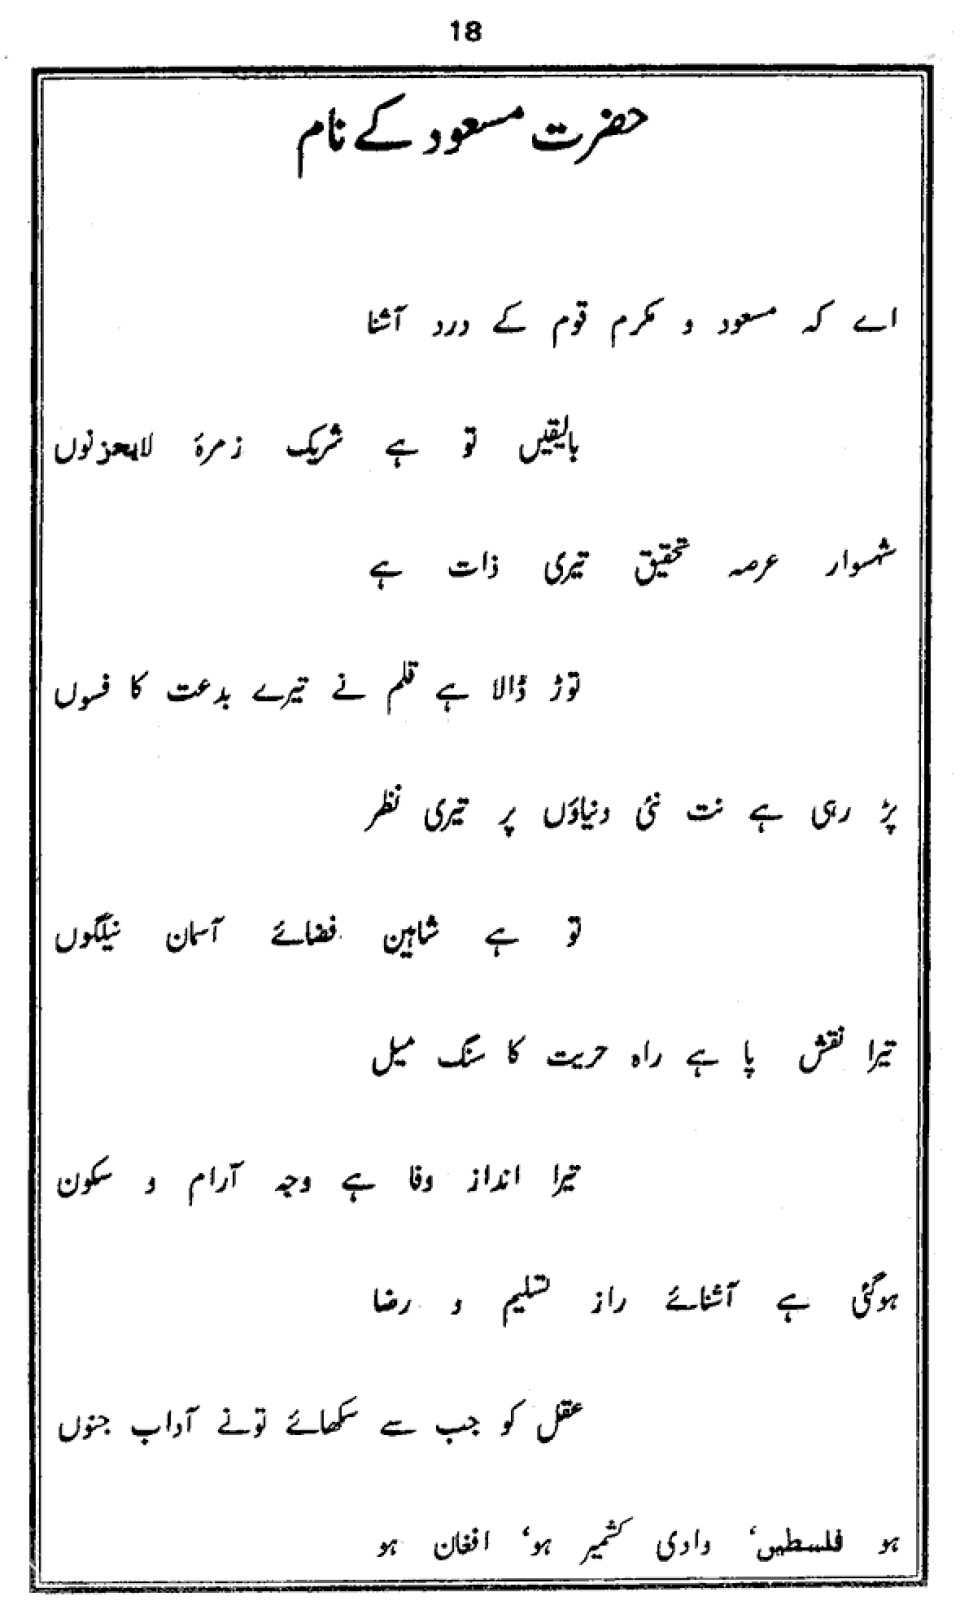 18
حضرت مسعود کے نام
اے کہ مسعود و مکرم قوم کے درد آشنا
بالیقیں تو ہے شریک زمرۂ لایحزنوں
شہسوار عرصہ تحقیق تیری ذات ہے
توڑ ڈالا ہے قلم نے تیرے بدعت کا فسوں
پڑ رہی ہے نت نئی دنیاؤں پر تیری نظر
تو ہے شاہین فضائے آسمان نیلگوں
تیرا نقش پا ہے راہ حریت کا سنگ میل
تیرا انداز وفا ہے وجہ آرام و سکون
ہوگئی ہے آشنائے راز تسلیم و رضا
عقل کو جب سے سکھائے تونے آداب جنوں
ہو فلسطیں‘ وادی کشمیر ہو‘ افغان ہو